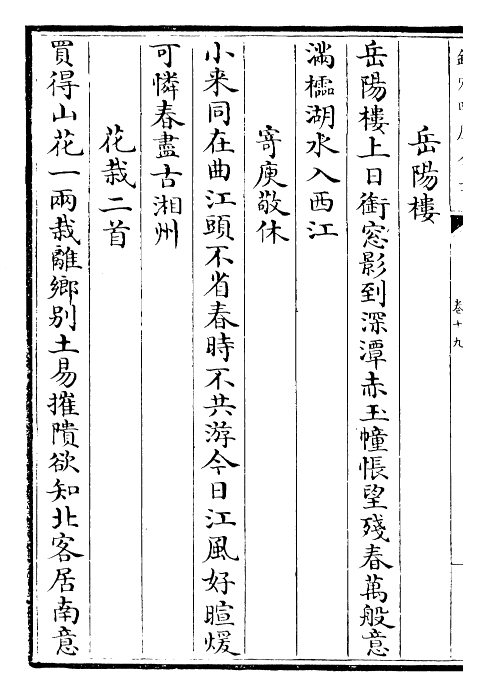 岳陽樓
岳陽樓上日銜窓影到深潭赤玉幢悵望殘春萬般意
滿櫺湖水入西江
寄庾敬休
小来同在曲江頭不省春時不共游今日江風好暄煖
可憐春盡古湘州
花栽二首
買得山花一兩栽離鄉别土易摧隤欲知北客居南意
卷十九